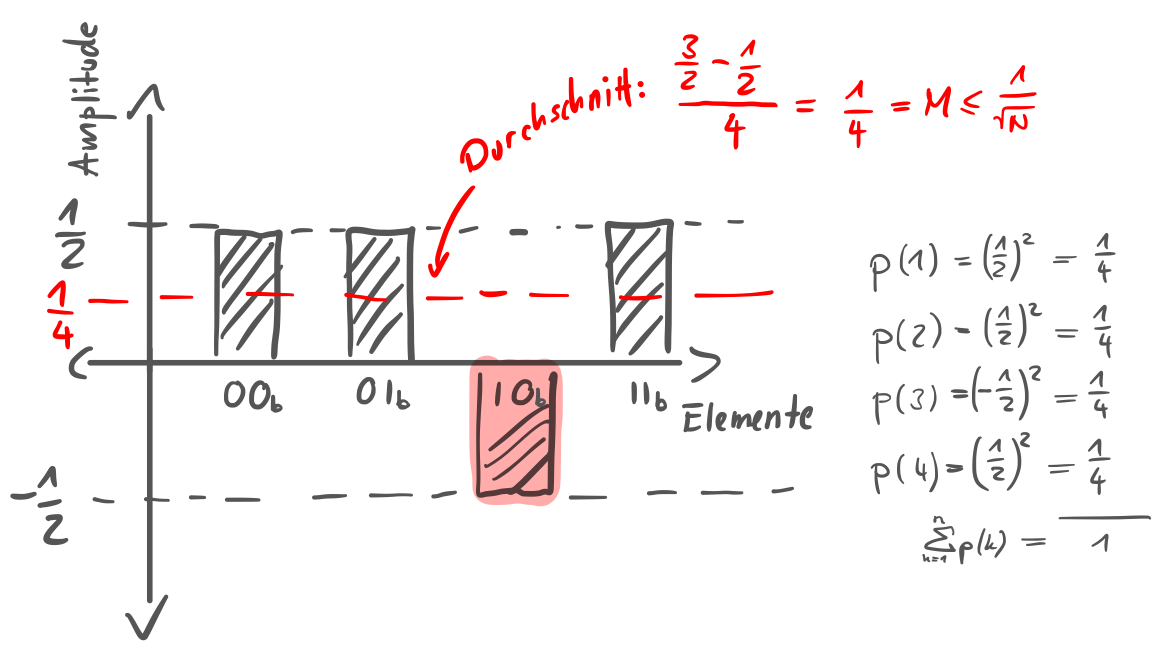 Amplitude
Durchschnitt: (3/2 - 1/2)/4 = 1/4 = M ≤ 1/√N
1/2
1/4
00b 01b 10b 11b
Elemente
-1/2
p(1) = (1/2)² = 1/4
p(2) - (1/2)² = 1/4
p(3) = (-1/2)² = 1/4
p(4) = (1/2)² = 1/4
∑ⁿₖ₌₁ p(k) = 1